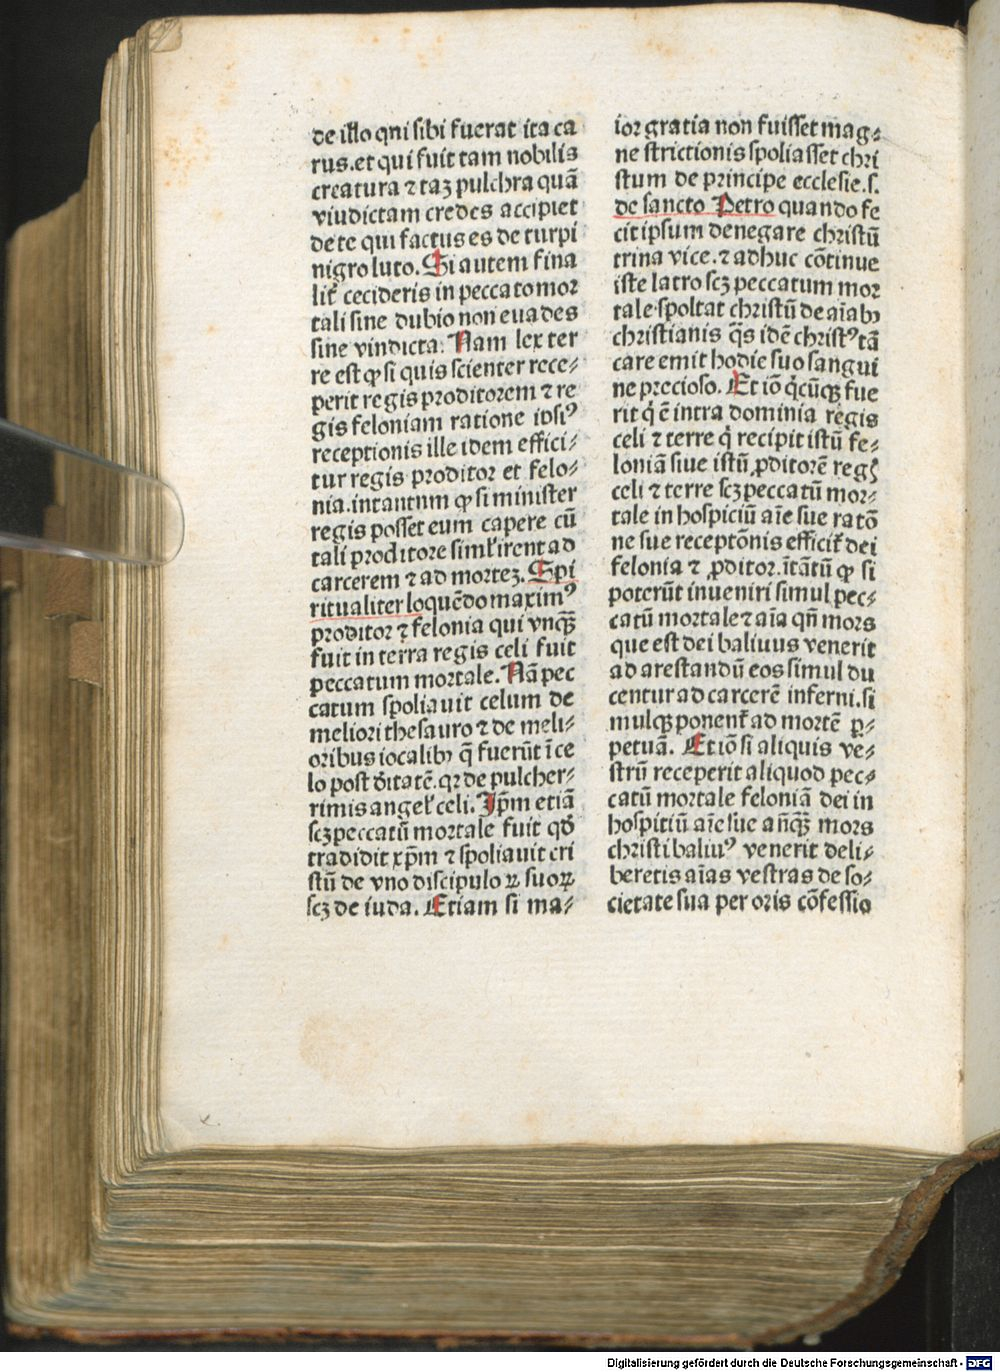 de illo qni sibi fuerat ita ca
rus.et qui fuit tam nobilis
creatura ⁊ taꝫ pulchra quā
viudictam credes accipiet
de te qui factus es de turpi
nigro luto. Si autem fina
lit̄ cecideris in peccato mor
tali sine dubio non euades
sine vindicta. Nam lex ter
re est ꝙ si quis scienter rece⸗
perit regis proditorem ⁊ re
gis feloniam ratione ipsiꝰ
receptionis ille idem effici⸗
tur regis proditor et felo⸗
nia.intantnm ꝙ si minister
regis posset eum capere cū
tali proditore siml̓ irent ad
carcerem ⁊ ad morteꝫ. Spi
ritualiter loquēdo maximꝰ
proditor ⁊ felonia qui vnqꝫ̄
fuit in terra regis celi fuit
peccatum mortale. Nā pec
catum spoliauit celum de
meliori thesauro ⁊ de meli⸗
oribus iocalibꝫ q̄ fuerūt ī ce
lo post d̓itatē.qꝛ de pulcher⸗
rimis angel̓ celi. Ip̄m etiā
scꝫ peccatū mortale fuit qd̓
tradidit xp̄m ⁊ spoliauit cri
stū de vno discipulo ꝝ suoꝝ
scꝫ de iuda. Etiam si ma⸗
ior gratia non fuisset mag⸗
ne strictionis spoliasset chri
stum de principe ecclesie.s.
de sancto Petro quando fe
cit ipsum denegare christū
trina vice.⁊ adhuc cōtinue
iste latro scꝫ peccatum mor
tale spoltat christū de aīabꝫ
christianis q̄s idē christꝰ tā
care emit hodie suo sangui
ne precioso. Et iō q̇cūqꝫ fue
rit q̇ ē intra dominia regis
celi ⁊ terre q̇ recipit istū fe⸗
loniā siue istū ꝓditorē regꝭ
celi ⁊ terre scꝫ peccatū mor⸗
tale in hospiciū aīe sue ratō
ne sue receptōnis efficit̄ dei
felonia ⁊ ꝓditor.ītātū ꝙ si
poterūt inueniri simul pec⸗
catū mortale ⁊ aīa qn̄ mors
que est dei baliuus venerit
ad arestandū eos simul du
centur ad carcerē inferni.si
mulqꝫ ponent̄ ad mortē ꝑ⸗
petuā. Et iō si aliquis ve⸗
strū receperit aliquod pec⸗
catū mortale feloniā dei in
hospitiū aīe sue anqꝫ̄ mors
christi baliuꝰ venerit deli⸗
beretis aīas vestras de so⸗
cietate sua per oris cōfessio
Digitalisierung gefördert durch die Deutsche Forschungsgemeinschaft - DFG